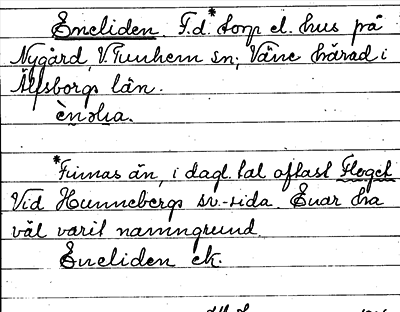 Eneliden. F.d.* torp el. hus på
Nygård, V. Tunhem sn; Väne härad i
Älfsborgs län.
ènəlia.
*Finnas än, i dagl. tal oftast Floget
Vid Hunnebergs sv.-sida. Enar ha
väl varit namngrund.
Eneliden ck.